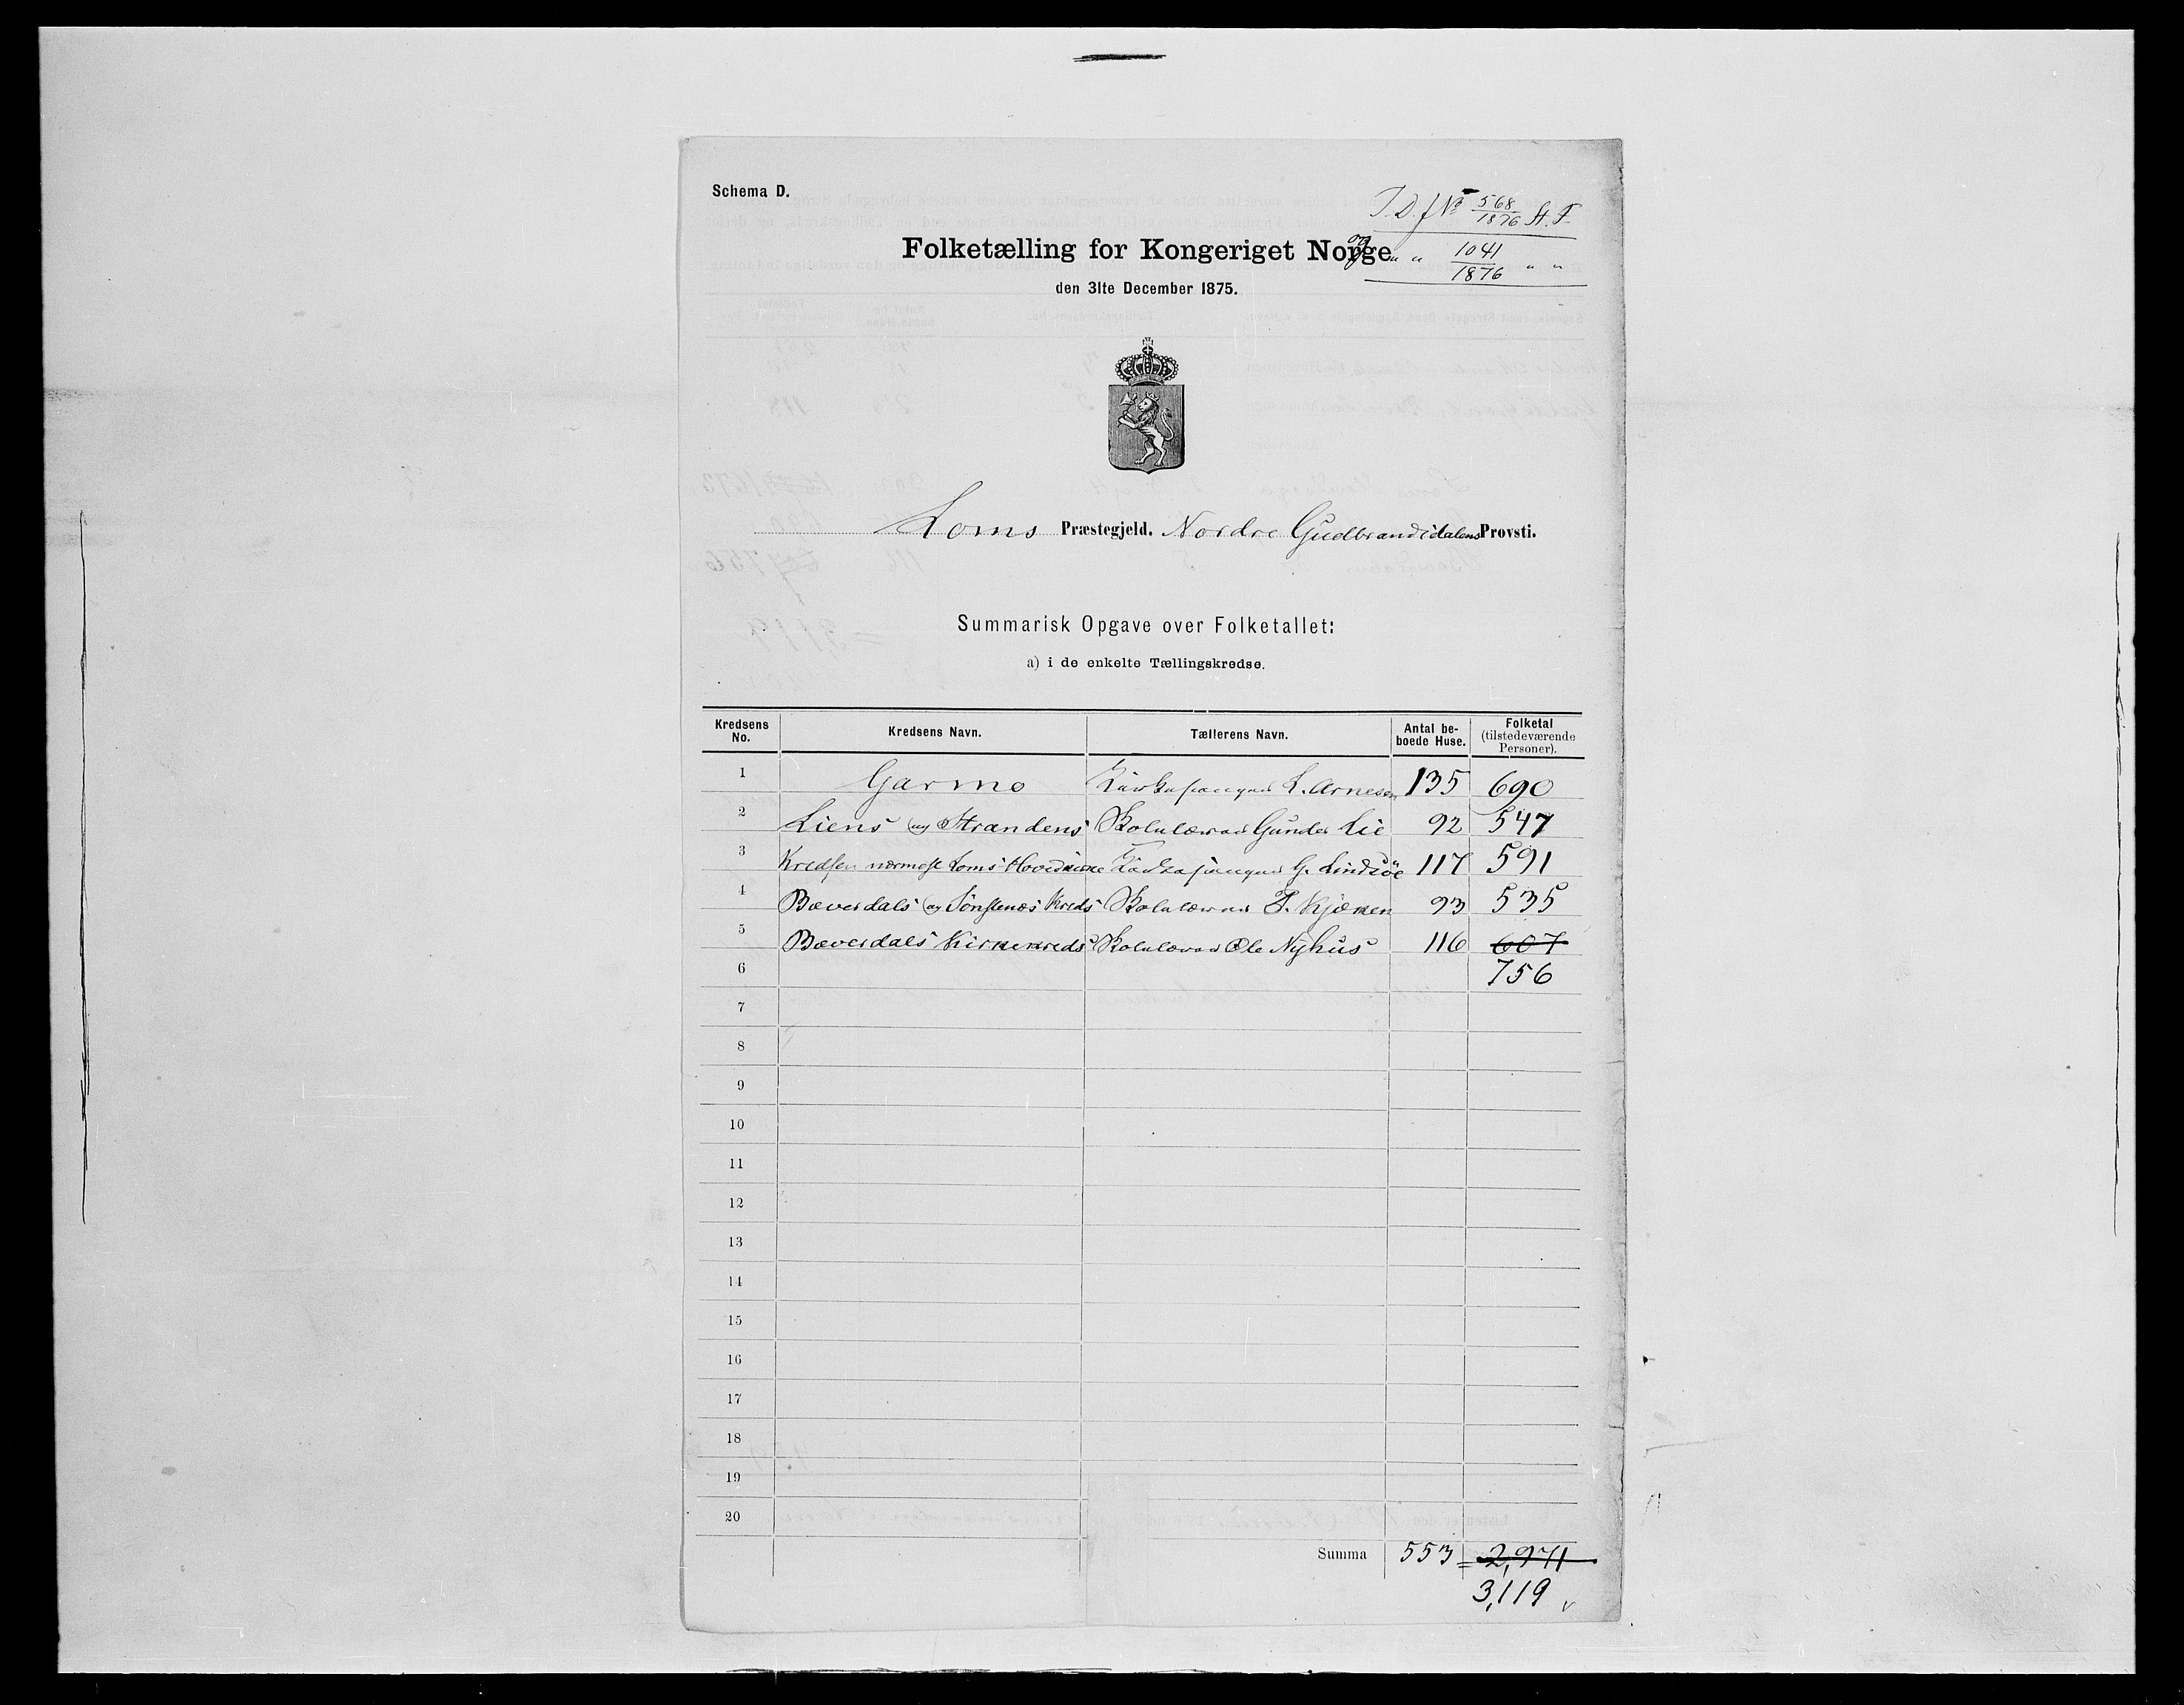 Schema D.
J. D. f Nº 568/1876 St. F.
og " " 1041/1876 " "
Folketælling for Kongeriget Norge
den 31te December 1875.
Loms Præstegjeld. Nordre Gudbrandsdalens Provsti.
Summarisk Opgave over Folketallet:
a) i de enkelte Tællingskredse.
Kredsens No. Kredsens Navn. Tællerens Navn. Antal beboede Huse. Folketal (tilstedeværende Personer).
1 Garmo Kirkesanger L. Arnesen 135 690
2 Liens og Strandens Skolelærer Gunder Lie 92 547
3 Kredsen nærmest Loms Hovedkirke Kirkesanger G. Lindsöe 117 591
4 Bæverdals og Sönstenæs Kreds Skolelærer P. Kjæken 93 535
5 Bæverdals Kirkekreds Skolelærer Ole Nyhus 116 607
6 756
7
8
9
10
11
12
13
14
15
16
17
18
19
20
Summa 553 = 2,971
3,119 v